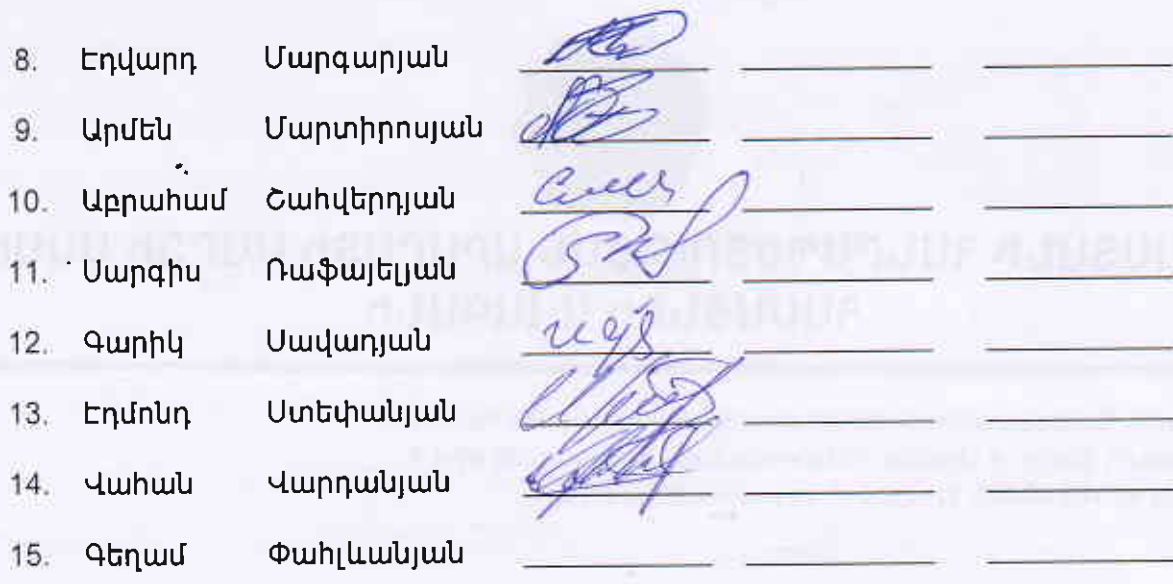 8. Էդվարդ Մարգարյան
9. Արմեն Մարտիրոսյան
10. Աբրահամ Շահվերդյան
11. Սարգիս Ռաֆայելյան
12. Գարիկ Սավադյան
13. Էդմոնդ Ստեփանյան
14. Վահան Վարդանյան
15. Գեղամ Փահլևանյան